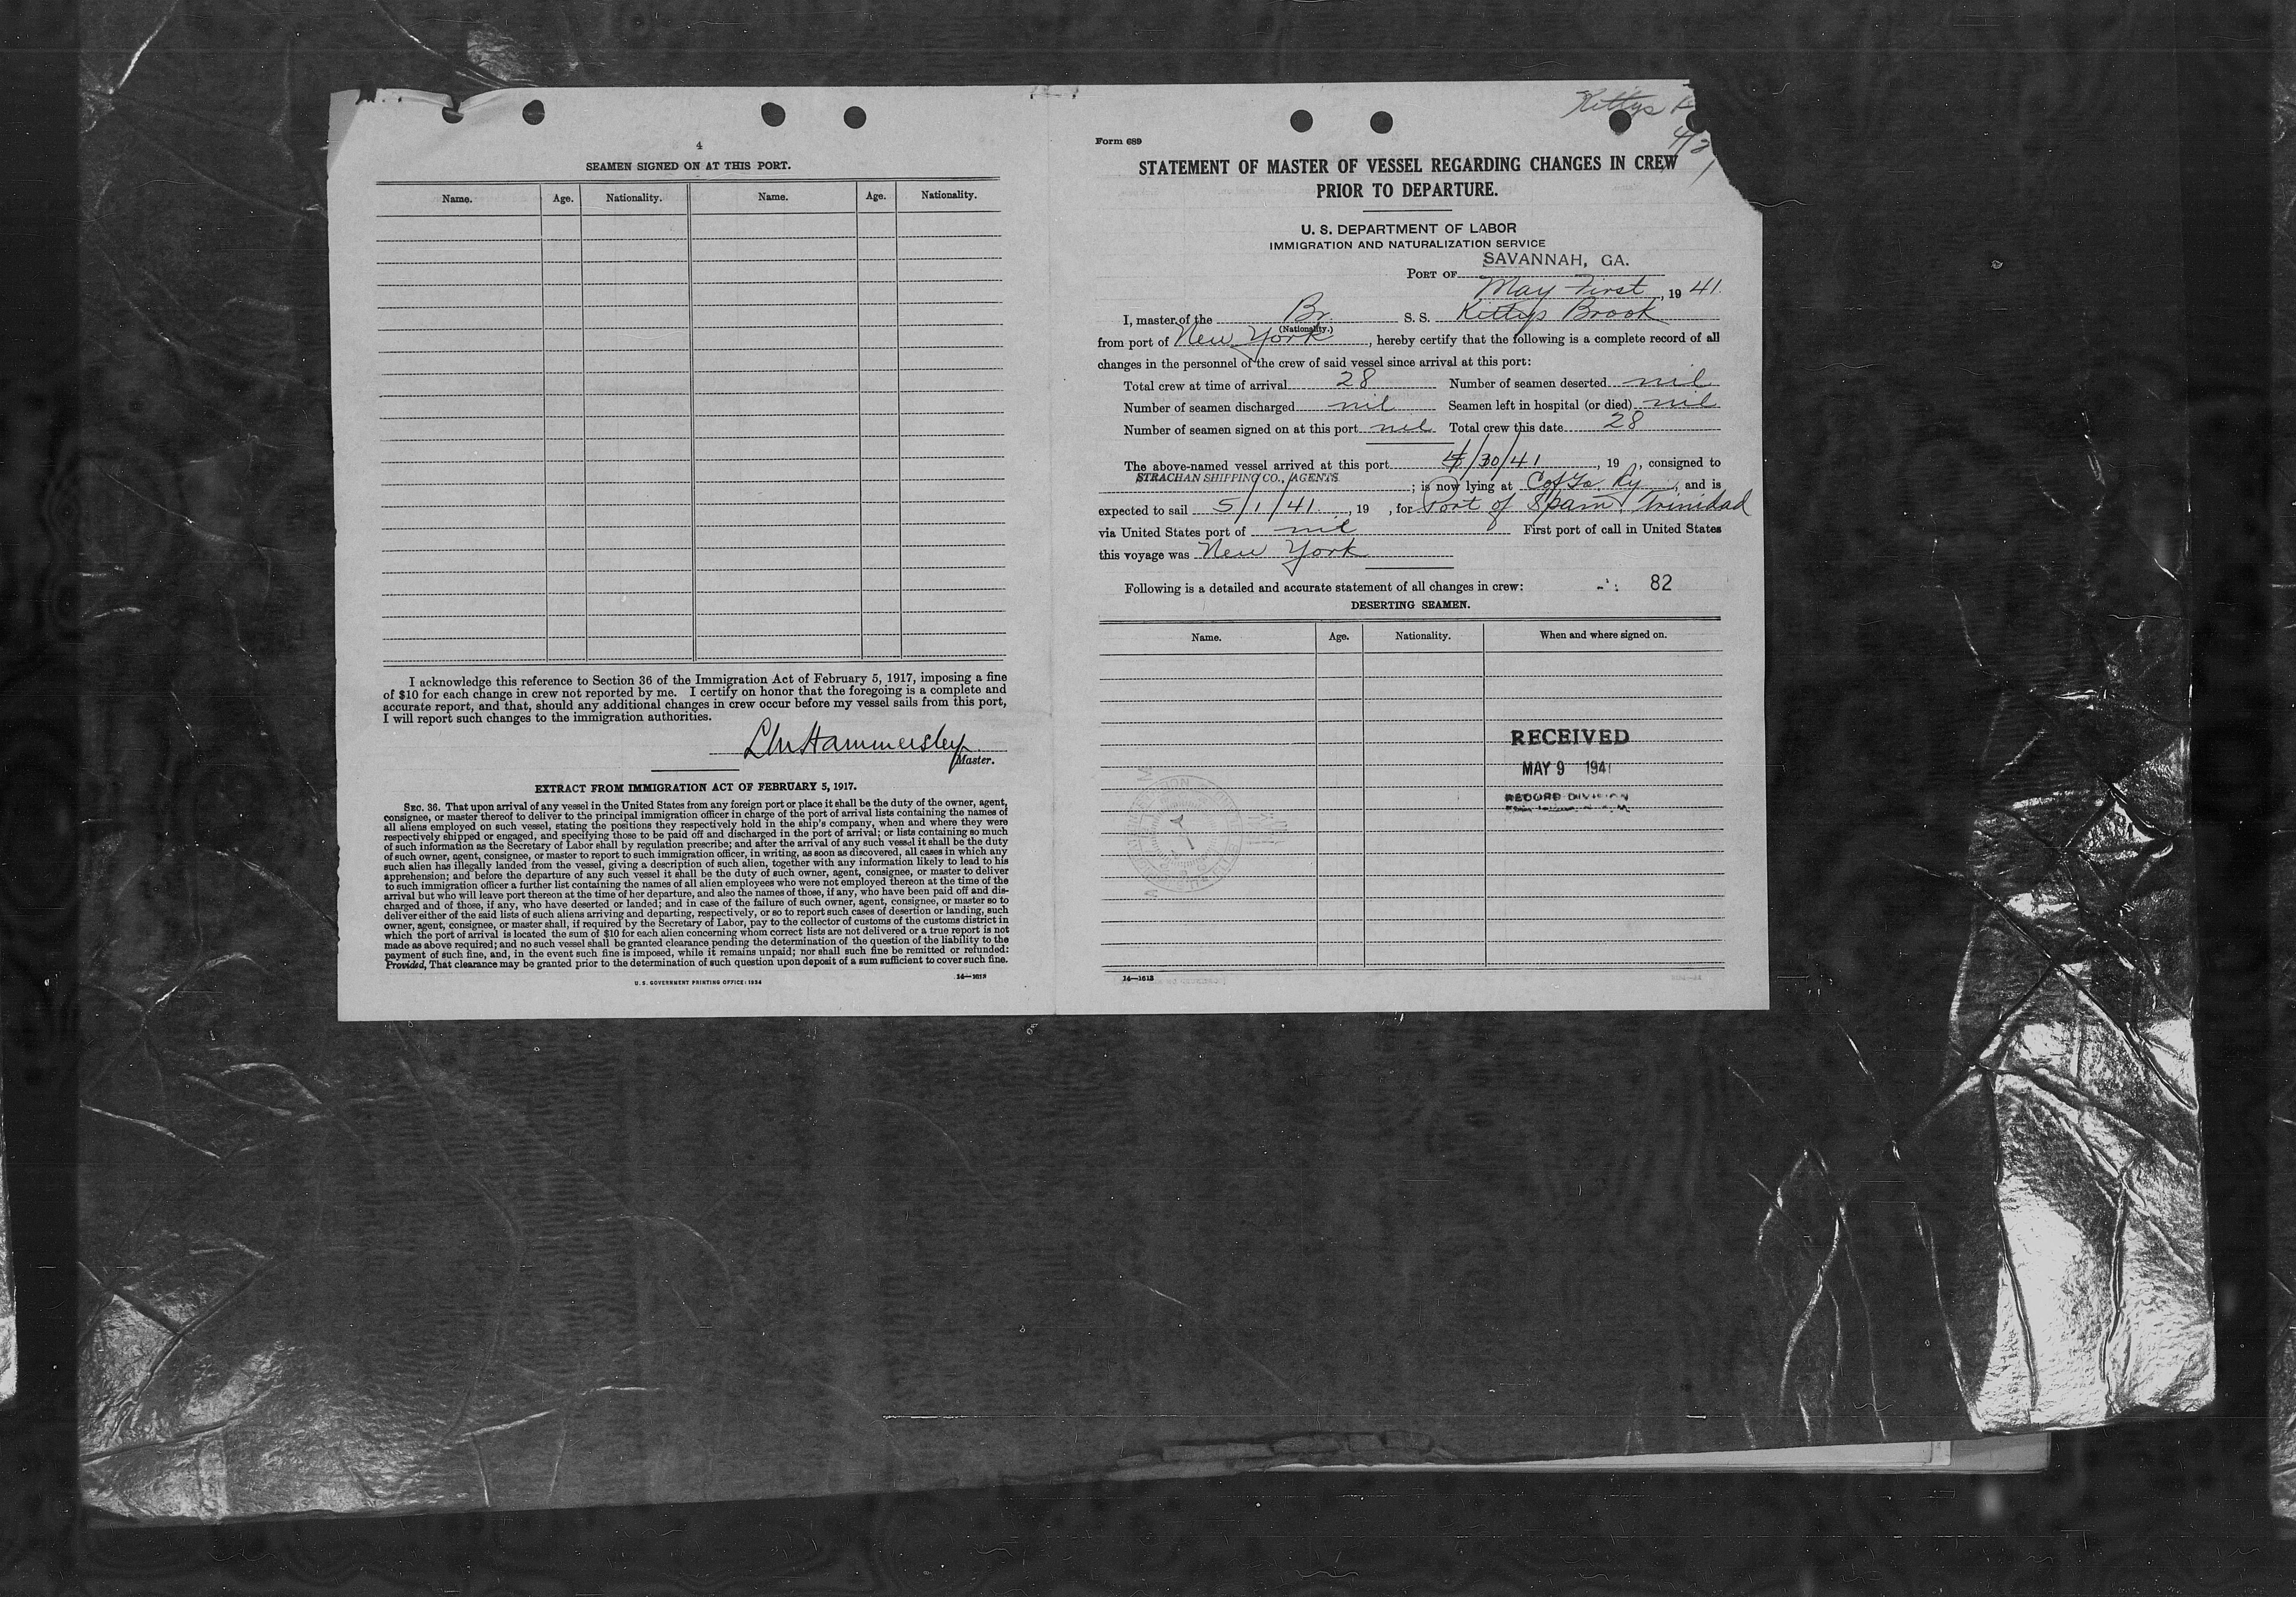 4
SEAMEN SIGNED ON AT THIS PORT.
Name. Age. Nationality. Name. Age. Nationality.
I acknowledge this reference to Section 36 of the Immigration Act of February 5, 1917, imposing a fine
of $10 for each change in crew not reported by me. I certify on honor that the foregoing is a complete and
accurate report, and that, should any additional changes in crew occur before my vessel sails from this port,
I will report such changes to the immigration authorities.
Hammersley
Master.
EXTRACT FROM IMMIGRATION ACT OF FEBRUARY 5, 1917.
SEC. 36. That upon arrival of any vessel in the United States from any foreign port or place it shall be the duty of the owner, agent,
consignee, or master thereof to deliver to the principal immigration officer in charge of the port of arrival lists containing the names of
all aliens employed on such vessel, stating the positions they respectively hold in the ship's company, when and where they were
respectively shipped or engaged, and specifying those to be paid off and discharged in the port of arrival; or lists containing so much
of such information as the Secretary of Labor shall by regulation prescribe; and after the arrival of any such vessel it shall be the duty
of such owner, agent, consignee, or master to report to such immigration officer, in writing, as soon as discovered, all cases in which any
such alien has illegally landed from the vessel, giving a description of such alien, together with any information likely to lead to his
apprehension; and before the departure of any such vessel it shall be the duty of such owner, agent, consignee, or master to deliver
to such immigration officer a further list containing the names of all alien employees who were not employed thereon at the time of the
arrival but who will leave port thereon at the time of her departure, and also the names of those, if any, who have been paid off and dis-
charged and of those, if any, who have deserted or landed; and in case of the failure of such owner, agent, consignee, or master so to
deliver either of the said lists of such aliens arriving and departing, respectively, or so to report such cases of desertion or landing, such
owner, agent, consignee, or master shall, if required by the Secretary of Labor, pay to the collector of customs of the customs district in
which the port of arrival is located the sum of $10 for each alien concerning whom correct lists are not delivered or a true report is not
made as above required; and no such vessel shall be granted clearance pending the determination of the question of the liability to the
payment of such fine, and, in the event such fine is imposed, while it remains unpaid; nor shall such fine be remitted or refunded:
Provided, That clearance may be granted prior to the determination of such question upon deposit of a sum sufficient to cover such fine.
14—1613
U. S. GOVERNMENT PRINTING OFFICE: 1934
Kittys
Form 689
STATEMENT OF MASTER OF VESSEL REGARDING CHANGES IN CREW
PRIOR TO DEPARTURE.
U. S. DEPARTMENT OF LABOR
IMMIGRATION AND NATURALIZATION SERVICE
PORT OF SAVANNAH, GA.
May First, 19 41.
I, master of the Br. S. S. Kittys Brook
(Nationality.)
from port of New York, hereby certify that the following is a complete record of all
changes in the personnel of the crew of said vessel since arrival at this port:
Total crew at time of arrival 28 Number of seamen deserted nil
Number of seamen discharged nil Seamen left in hospital (or died) nil
Number of seamen signed on at this port nil Total crew this date 28
The above-named vessel arrived at this port 4/30/41, 19 , consigned to
STRACHAN SHIPPING CO., AGENTS ; is now lying at C of Ga. Ry, and is
expected to sail 5/1/41, 19 , for Port of Spain Trinidad
via United States port of nil First port of call in United States
this voyage was New York
Following is a detailed and accurate statement of all changes in crew: 82
DESERTING SEAMEN.
Name. Age. Nationality. When and where signed on.
RECEIVED
MAY 9 1941
RECORD DIVISION
14—1613